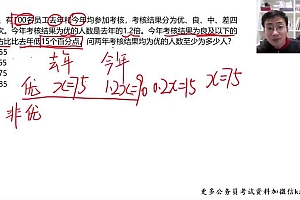 有100名员工去年和今年均参加考核,考核结果分为优、良、中、差四
次。今年考核结果为优的人数是去年的1.2倍,今年考核结果为良及以下的
占比比去年低15个百分点。问两年考核结果均为优的人数至少为多少人?
55
65
75
85
去年 今年
优 x=75 1.2x=90 0.2x=15 x=75
非优
更多公务员考试资料加微信k